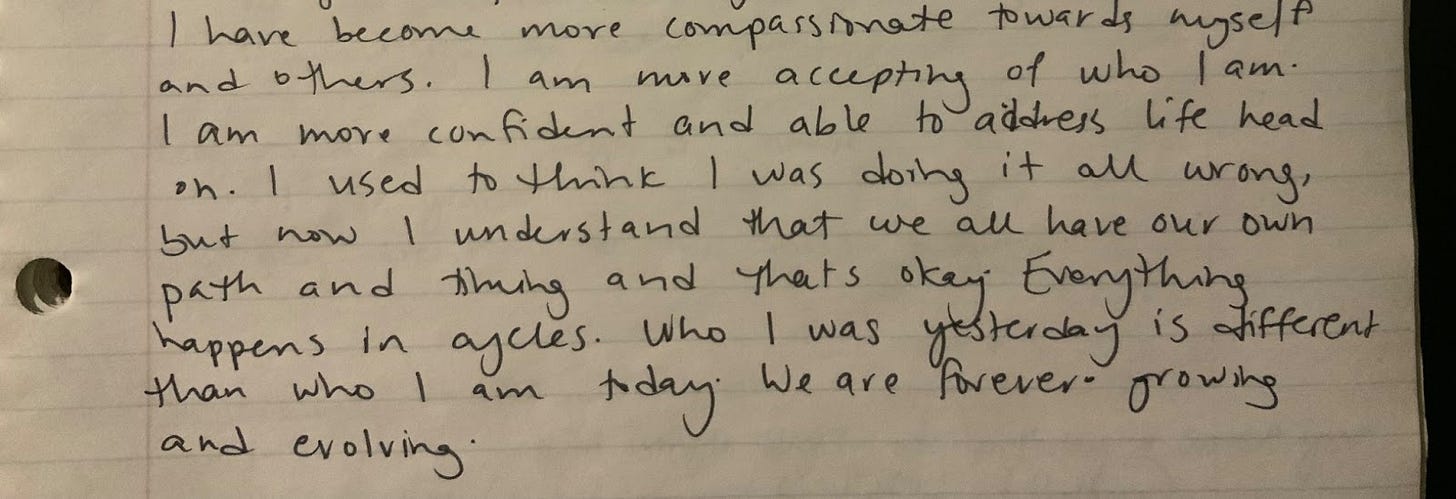 I have become more compassionate towards myself
and others. I am more accepting of who I am.
I am more confident and able to address life head
on. I used to think I was doing it all wrong,
but now I understand that we all have our own
path and timing and thats okay. Everything
happens in cycles. Who I was yesterday is different
than who I am today. We are forever growing
and evolving.